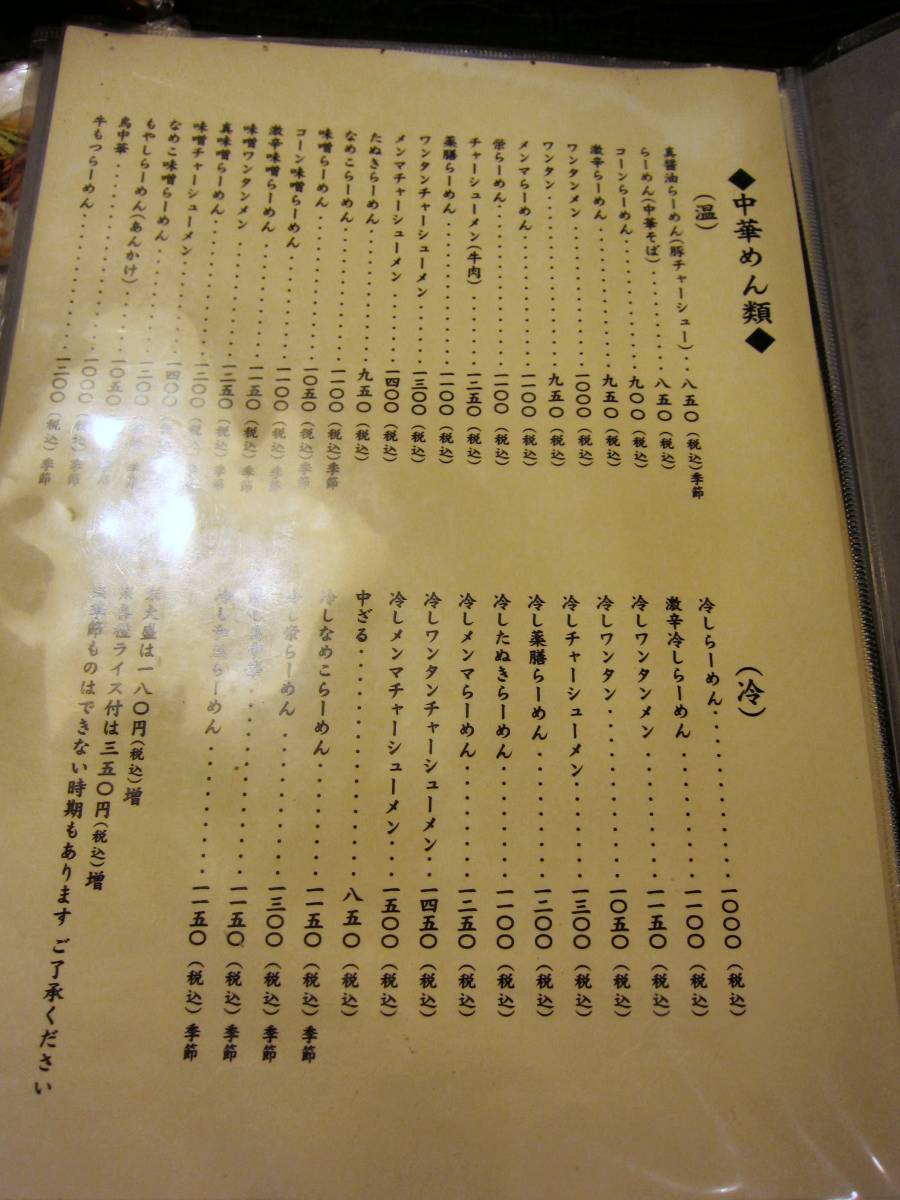 ◆中華めん類◆
(温)
真醤油らーめん(豚チャーシュー)‥八五〇(税込)季節
らーめん(中華そば)‥‥‥‥八五〇(税込)
コーンらーめん‥‥‥‥九〇〇(税込)
激辛らーめん‥‥‥‥九五〇(税込)
ワンタンメン‥‥‥‥一〇〇〇(税込)
ワンタン‥‥‥‥九五〇(税込)
メンマらーめん‥‥‥‥一一五〇(税込)
栄らーめん‥‥‥‥一一〇〇(税込)
チャーシューメン(牛肉)‥‥‥‥一二五〇(税込)
薬膳らーめん‥‥‥‥一一〇〇(税込)
ワンタンチャーシューメン‥‥‥‥一三〇〇(税込)
メンマチャーシューメン‥‥‥‥一四〇〇(税込)
たぬきらーめん‥‥‥‥九五〇(税込)
なめこらーめん‥‥‥‥一一〇〇(税込)季節
味噌らーめん‥‥‥‥一〇五〇(税込)季節
コーン味噌らーめん‥‥‥‥一一〇〇(税込)季節
激辛味噌らーめん‥‥‥‥一一五〇(税込)季節
味噌ワンタンメン‥‥‥‥一二五〇(税込)季節
真味噌らーめん‥‥‥‥一三〇〇(税込)季節
味噌チャーシューメン‥‥‥‥一四〇〇
なめこ味噌らーめん‥‥‥‥一二〇〇季節
もやしらーめん(あんかけ)‥‥一〇五〇季節
鳥中華‥‥‥‥一〇〇〇(税込)季節
牛もつらーめん‥‥‥‥一二〇〇(税込)季節
(冷)
冷しらーめん‥‥‥‥一〇〇〇(税込)
激辛冷しらーめん‥‥‥‥一一〇〇(税込)
冷しワンタンメン‥‥‥‥一一五〇(税込)
冷しワンタン‥‥‥‥一〇五〇(税込)
冷しチャーシューメン‥‥‥‥一三〇〇(税込)
冷し薬膳らーめん‥‥‥‥一二〇〇(税込)
冷したぬきらーめん‥‥‥‥一一〇〇(税込)
冷しメンマらーめん‥‥‥‥一二五〇(税込)
冷しワンタンチャーシューメン‥一四五〇(税込)
冷しメンマチャーシューメン‥‥一五〇〇(税込)
中ざる‥‥‥‥八五〇(税込)
冷しなめこらーめん‥‥‥‥一一五〇(税込)季節
冷し栄らーめん‥‥‥‥一三〇〇(税込)季節
し‥‥‥‥一一五〇(税込)季節
冷しらーめん‥‥‥‥一一五〇(税込)季節
大盛は一八〇円(税込)増
ライス付は三五〇円(税込)増
季節ものはできない時期もあります ご了承ください